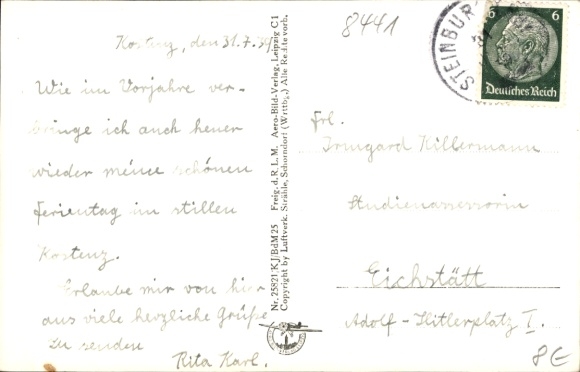 Kostenz, den 31.7.39
Wie im Vorjahre ver-
bringe ich auch heuer
wieder meine schönen
Ferientag im stillen
Kostenz.
Erlaube mir von hier
aus viele herzliche Grüße
zu senden
Rita Karl.
Nr. 25821 KJ/BdM25 Freig. d. R. L. M. Aero-Bild-Verlag, Leipzig C1
Copyright by Luftverk. Strähle, Schorndorf (Wrttbg.) Alle Rechte vorb.
8441
STEINBUR
6 6
Deutsches Reich
Frl.
Irmgard Killermann
Studienassessorin
Eichstätt
Adolf-Hitlerplatz I.
8E